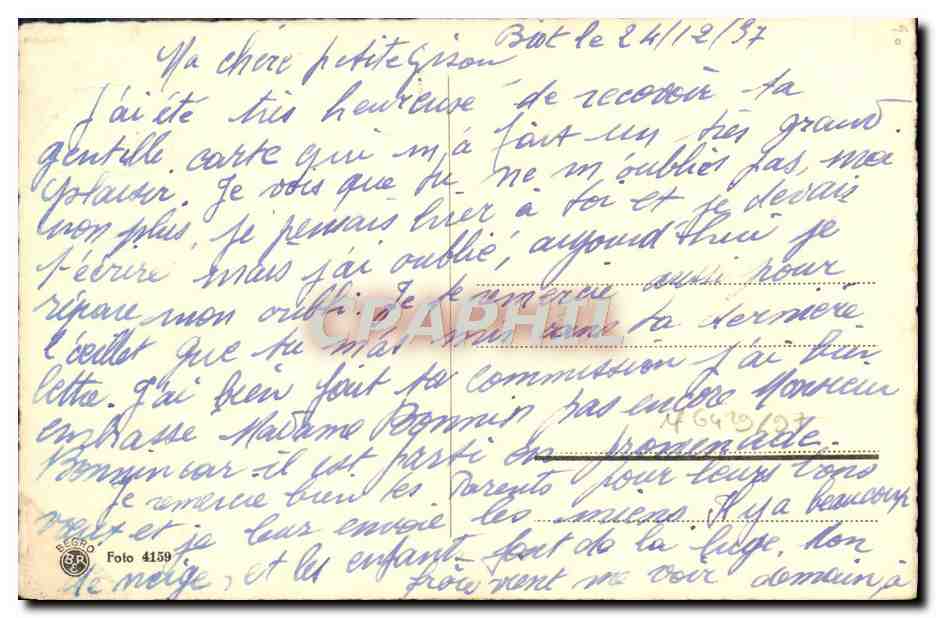 Biot le 24/12/37
Ma chère petite Gison
J'ai été très heureuse de recevoir ta
gentille carte qui m'a fait un très grand
plaisir. Je vois que tu ne m'oublies pas, moi
non plus, je pensais hier à toi et je devais
t'écrire mais j'ai oublié, aujourd'hui je
répare mon oubli. Je te remercie aussi pour
l'œillet que tu m'as mis dans ta dernière
lettre. J'ai bien fait ta commission j'ai bien
embrasse Madame Bonnin pas encore Monsieur
Bonnin car il est parti en promenade.
Je remercie bien tes Parents pour leurs bons
vœux et je leur envoie les miens. Il y a beaucoup
de neige, et les enfants font de la luge. Mon
frère vient me voir demain à
CPAPHIL
BEGRO
Foto 4159